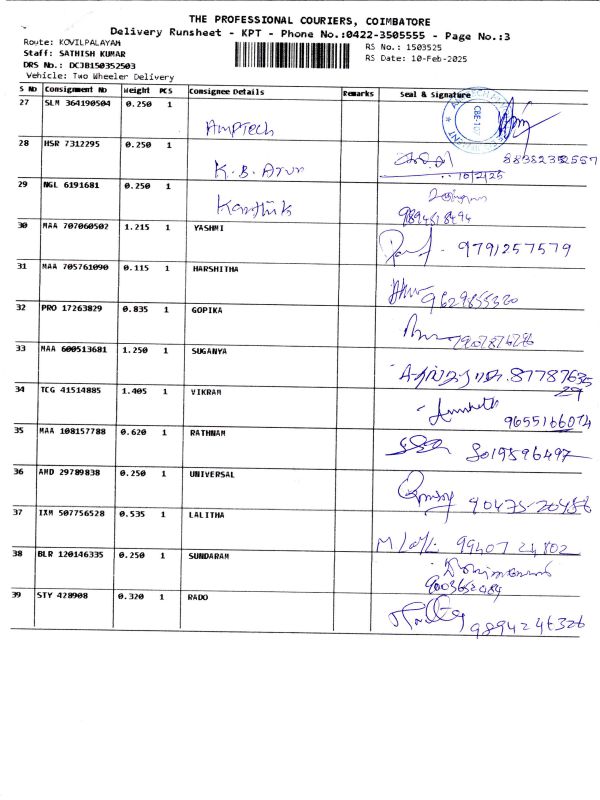 THE PROFESSIONAL COURIERS, COIMBATORE
Delivery Runsheet - KPT - Phone No.:0422-3505555 - Page No.:3
Route: KOVILPALAYAM
RS No.: 1503525
Staff: SATHISH KUMAR
RS Date: 10-Feb-2025
DRS No.: DCJB150352503
Vehicle: Two Wheeler Delivery
S No Consignment No Weight PCS Consignee Details Remarks Seal & Signature
27 SLM 364190504 0.250 1 Amptech
28 HSR 7312295 0.250 1 K.B. Arun
10/2/25
29 NGL 6191681 0.250 1 Karthik
30 MAA 707060502 1.215 1 YASHMI 9791257579
31 MAA 705761090 0.115 1 HARSHITHA 9629855320
32 PRO 17263829 0.835 1 GOPIKA
33 MAA 600513681 1.250 1 SUGANYA 87787635
29
34 TCG 41514885 1.405 1 VIKRAM
9655166074
35 MAA 108157788 0.620 1 RATHNAM 8019596497
36 AMD 29789838 0.250 1 UNIVERSAL 90475-20456
37 IXM 507756528 0.535 1 LALITHA 99407 24802
38 BLR 120146335 0.250 1 SUNDARAM
39 STY 428908 0.320 1 RADO 9894246326